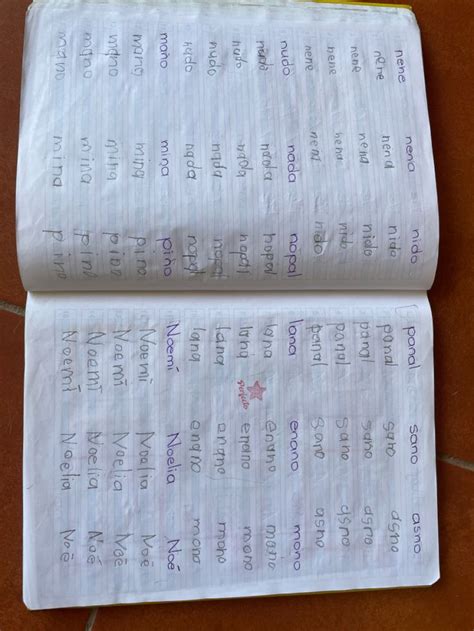 nene nena nido
nene nena nido
nene nena nido
nene nena nido
nene nena nido
nudo nada nopal
nudo nada nopal
nudo nada nopal
nudo nada nopal
nudo nada nopal
mano mina pino
mano mina pino
mano mina pino
mano mina pino
mano mina pino
panal sano asno
panal sano asno
panal sano asno
panal sano asno
panal sano asno
lana enano mono
lana enano mono
lana enano mono
lana enano mono
lana enano mono
Noemí Noelia Noé
Noemí Noelia Noé
Noemí Noelia Noé
Noemí Noelia Noé
Noemí Noelia Noé